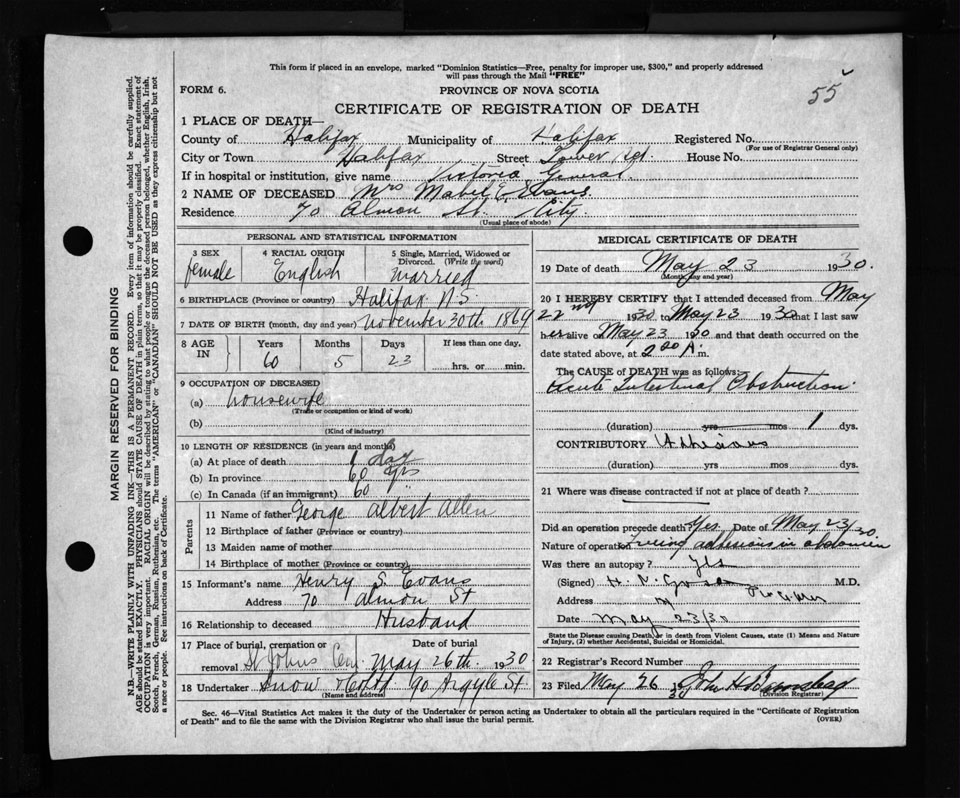 This form if placed in an envelope, marked "Dominion Statistics—Free, penalty for improper use, $300," and properly addressed
will pass through the Mail "FREE"
55
FORM 6.
PROVINCE OF NOVA SCOTIA
CERTIFICATE OF REGISTRATION OF DEATH
1 PLACE OF DEATH—
County of Halifax Municipality of Halifax Registered No.
(For use of Registrar General only)
City or Town Halifax Street Tower Rd. House No.
If in hospital or institution, give name Victoria General
2 NAME OF DECEASED Mrs Mabel E. Evans.
Residence 70 Almon St. City.
(Usual place of abode)
PERSONAL AND STATISTICAL INFORMATION
3 SEX 4 RACIAL ORIGIN 5 Single, Married, Widowed or
Divorced. (Write the word)
female English married
6 BIRTHPLACE (Province or country) Halifax N.S.
7 DATE OF BIRTH (month, day and year) november 30th 1869
8 AGE IN Years Months Days If less than one day,
60 5 23 hrs. or min.
9 OCCUPATION OF DECEASED
(a) housewife
(Trade or occupation or kind of work)
(b)
(Kind of industry)
10 LENGTH OF RESIDENCE (in years and months)
(a) At place of death 1 day
(b) In province 60 yrs
(c) In Canada (if an immigrant) 60 "
Parents
11 Name of father George Albert Allen
12 Birthplace of father (Province or country)
13 Maiden name of mother
14 Birthplace of mother (Province or country)
15 Informant's name Henry S. Evans
Address 70 almon St
16 Relationship to deceased Husband
17 Place of burial, cremation or Date of burial
removal St Johns Cem. May 26th. 1930
18 Undertaker Snow 90 Argyle St
(Name and address)
MEDICAL CERTIFICATE OF DEATH
19 Date of death May 23 1930.
(Month, day and year)
20 I HEREBY CERTIFY that I attended deceased from May
22nd 1930 to May 23 1930 that I last saw
her alive on May 23 1930 and that death occurred on the
date stated above, at 2 20 A m.
The CAUSE of DEATH was as follows:
Acute Intestinal Obstruction.
(duration) yrs mos 1 dys.
CONTRIBUTORY Adhesions
(duration) yrs mos dys.
21 Where was disease contracted if not at place of death?
Did an operation precede death? Yes. Date of May 23/30
Nature of operation Freeing adhesions in abdomen
Was there an autopsy? Yes
(Signed) M.D.
Address
Date May 23/30
State the Disease causing Death, or in death from Violent Causes, state (1) Means and Nature
of Injury, (2) whether Accidental, Suicidal or Homicidal.
22 Registrar's Record Number
23 Filed May 26 30 John H
(Division Registrar)
Sec. 46—Vital Statistics Act makes it the duty of the Undertaker or person acting as Undertaker to obtain all the particulars required in the "Certificate of Registration
of Death" and to file the same with the Division Registrar who shall issue the burial permit.
(OVER)
MARGIN RESERVED FOR BINDING
N.B.—WRITE PLAINLY WITH UNFADING INK—THIS IS A PERMANENT RECORD. Every item of information should be carefully supplied.
AGE should be stated EXACTLY. PHYSICIANS should STATE CAUSE OF DEATH in plain terms, so that it may be properly classified. Exact statement of
OCCUPATION is very important. RACIAL ORIGIN will be described by stating to what people or tongue the deceased person belonged, whether English, Irish,
Scotch, French, German, Russian, Ruthenian, etc. The terms "AMERICAN" or "CANADIAN" SHOULD NOT BE USED as they express citizenship but not
a race or people. See instructions on back of Certificate.